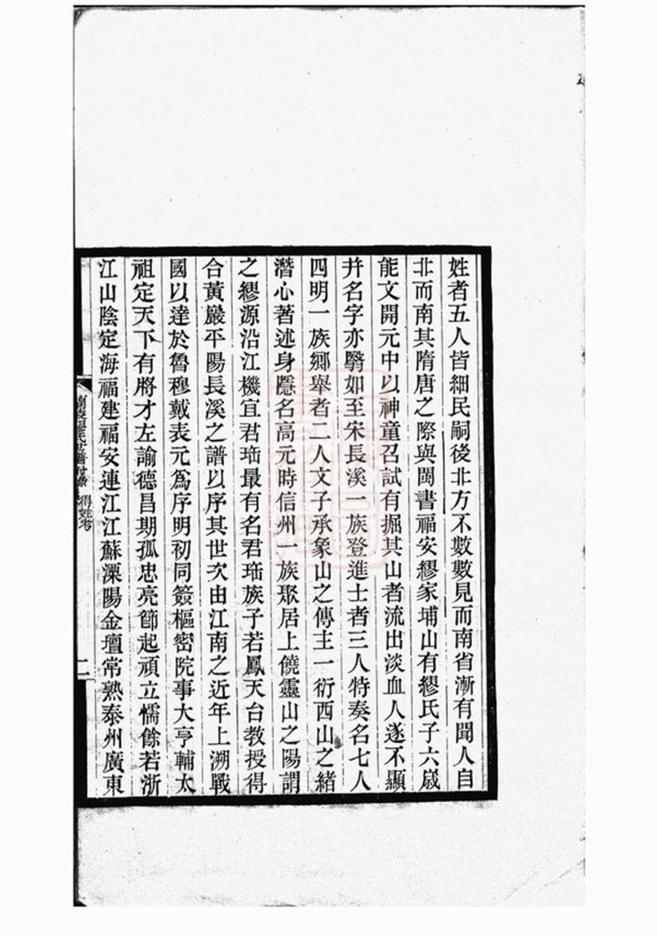 姓者五人皆細民嗣後北方不數數見而南省漸有聞人自
北而南其隋唐之際與閩書福安繆家埔山有繆氏子六歲
能文開元中以神童召試有掘其山者流出淡血人遂不顯
并名字亦翳如至宋長溪一族登進士者三人特奏名七人
四明一族鄉舉者二人文子承象山之傳主一衍西山之緒
潛心著述身隱名高元時信州一族聚居上饒靈山之陽謂
之繆源沿江機宜君珤最有名君珤族子若鳳天台教授得
合黃巖平陽長溪之譜以序其世次由江南之近年上溯戰
國以達於魯穆戴表元爲序明初同簽樞密院事大亨輔太
祖定天下有將才左諭德昌期孤忠亮節起頑立懦餘若浙
江山陰定海福建福安連江江蘇溧陽金壇常熟泰州廣東
得姓考
二